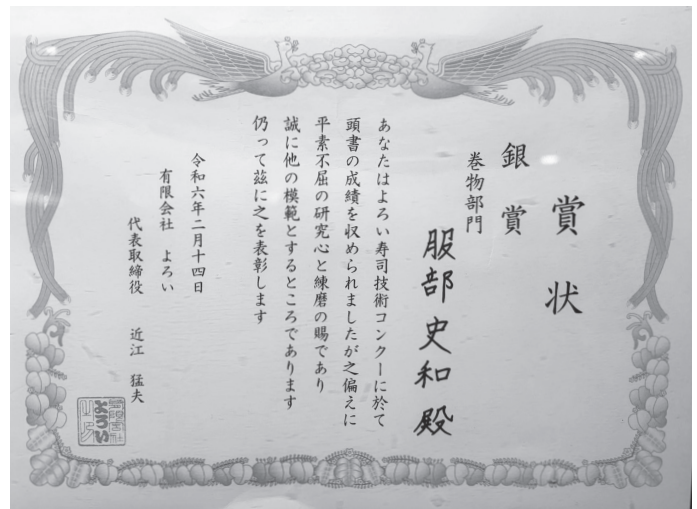 賞状
銀賞
巻物部門
服部史和殿
あなたはよろい寿司技術コンクーに於て
頭書の成績を収められましたが之偏えに
平素不屈の研究心と練磨の賜であり
誠に他の模範とするところであります
仍って茲に之を表彰します
令和六年二月十四日
有限会社 よろい
代表取締役 近江 猛夫